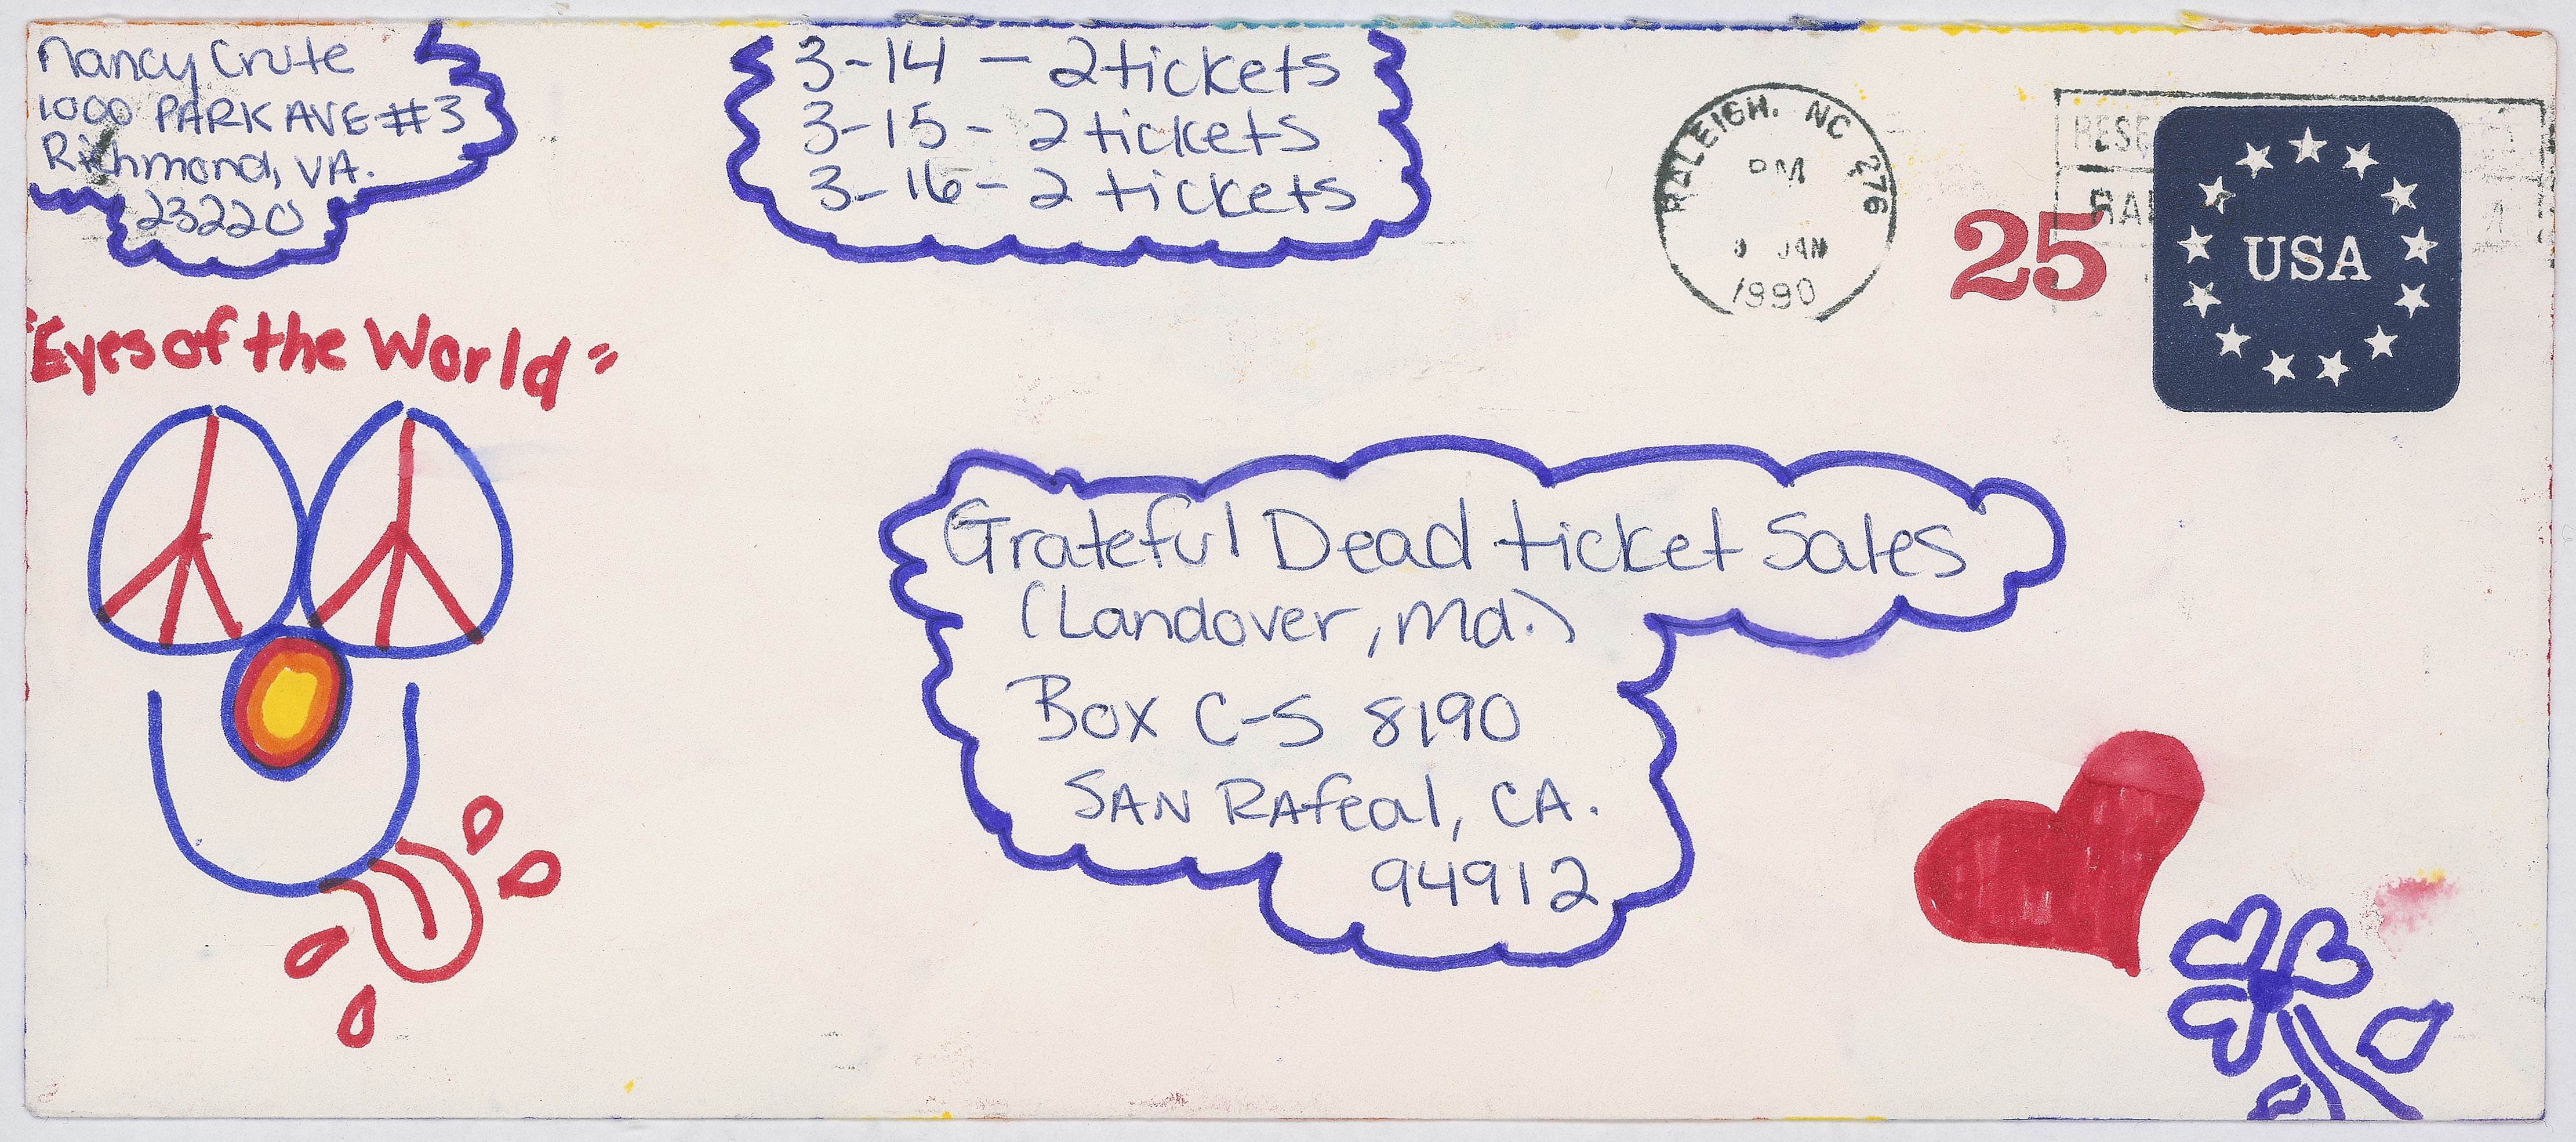 Nancy Crute
1000 PARK AVE #3
Richmond, VA.
23220
3-14 - 2 tickets
3-15 - 2 tickets
3-16 - 2 tickets
RALEIGH, NC 276
PM
JAN
1990
25
USA
"Eyes of the World"
Grateful Dead ticket Sales
(Landover, Md.)
Box C-S 8190
SAN RAfeal, CA.
94912